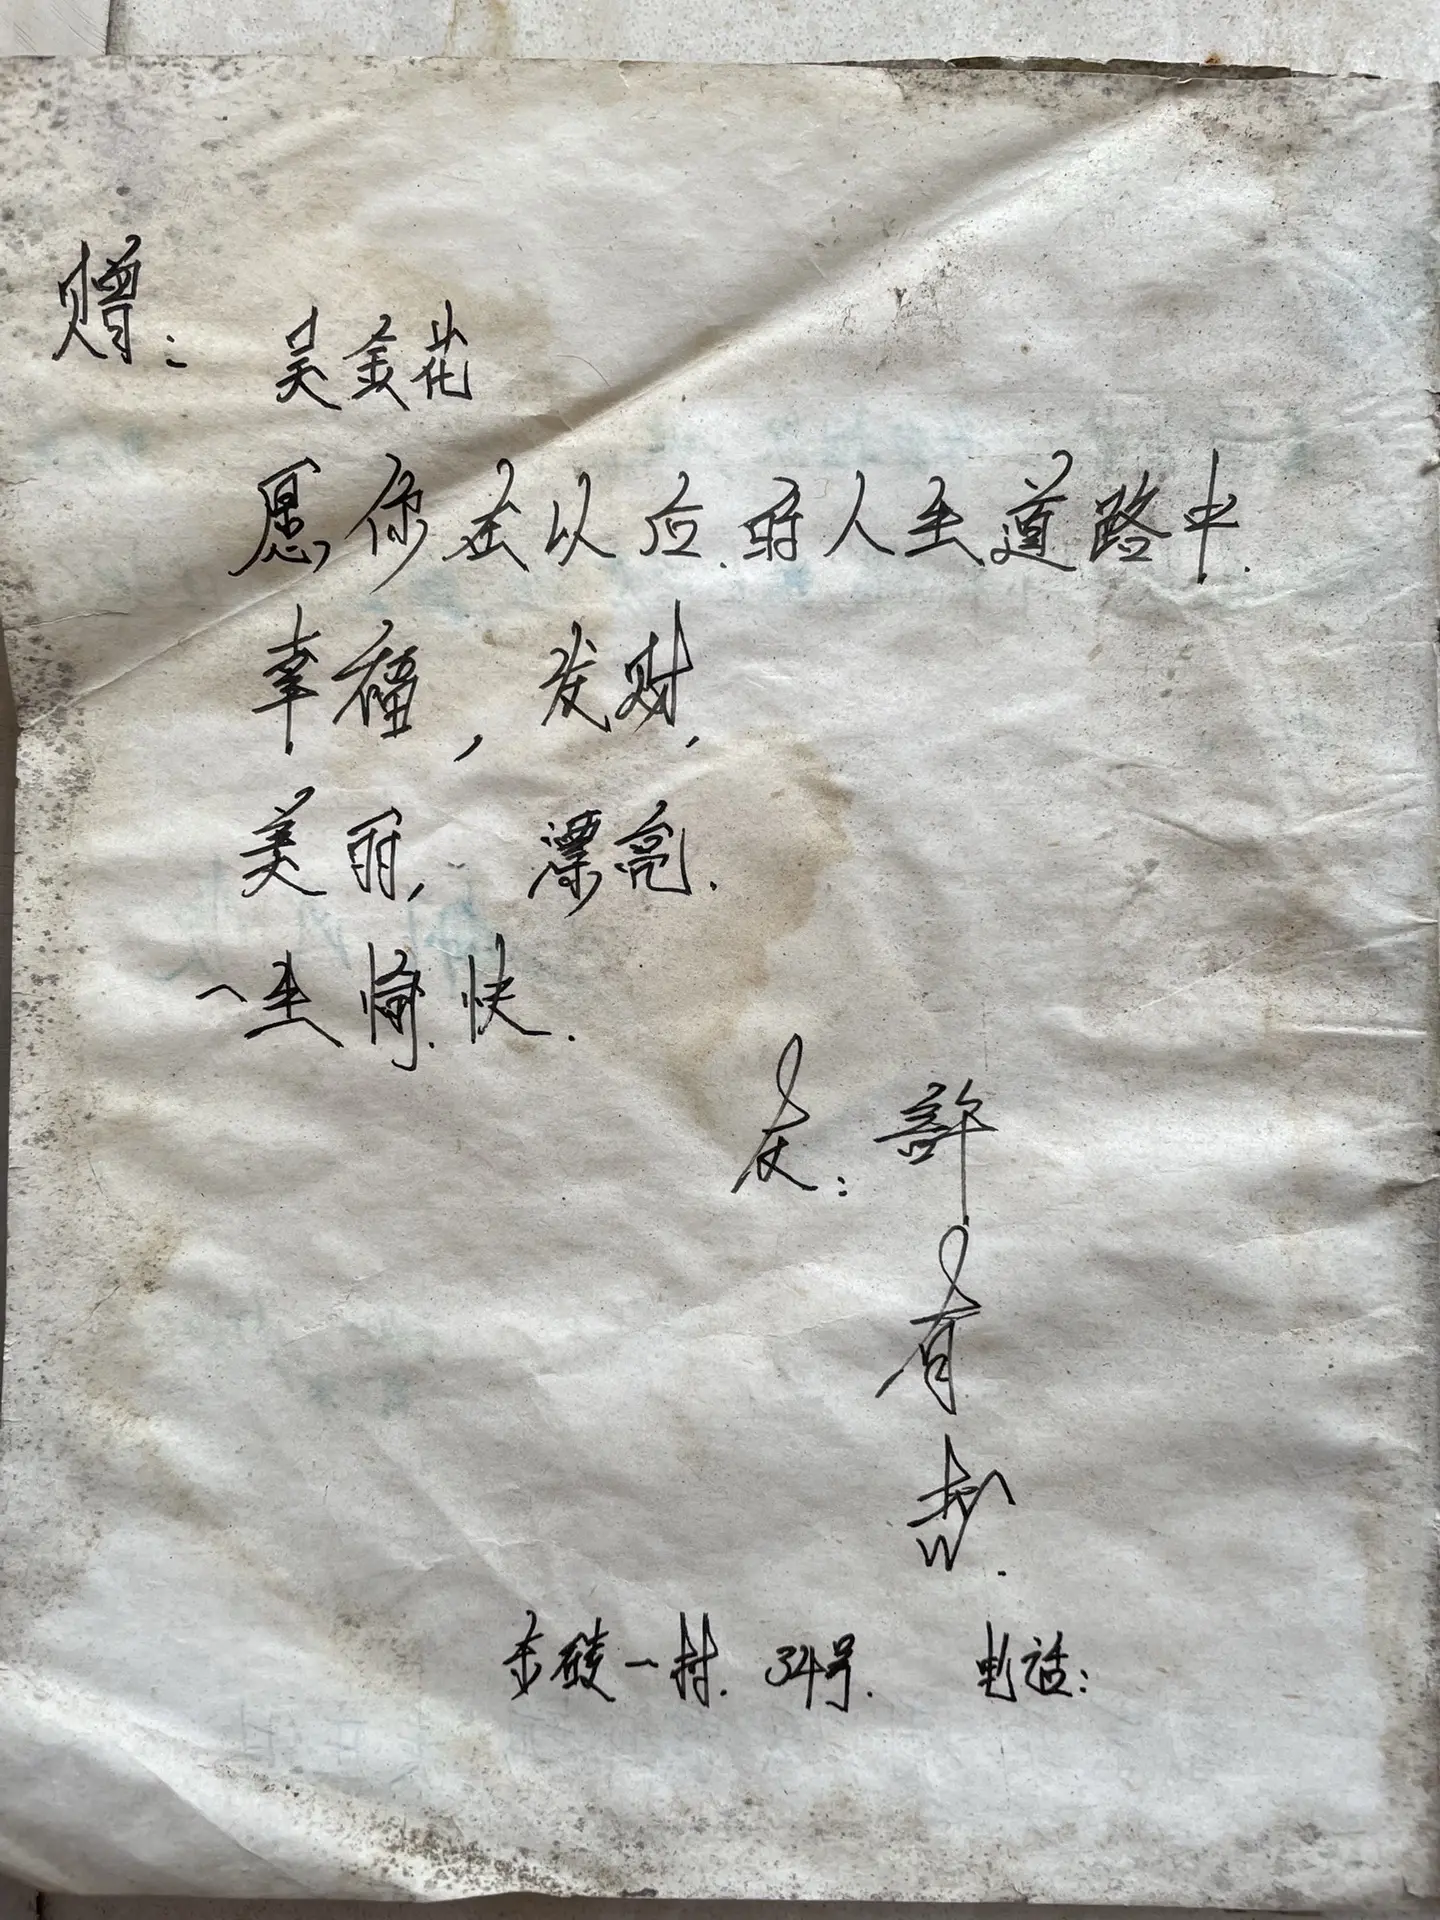 赠:
吴金花
愿你在以后.的人生道路中.
幸福,发财,
美丽,漂亮.
一生愉.快.
友:許
有
一村.34号.电话: